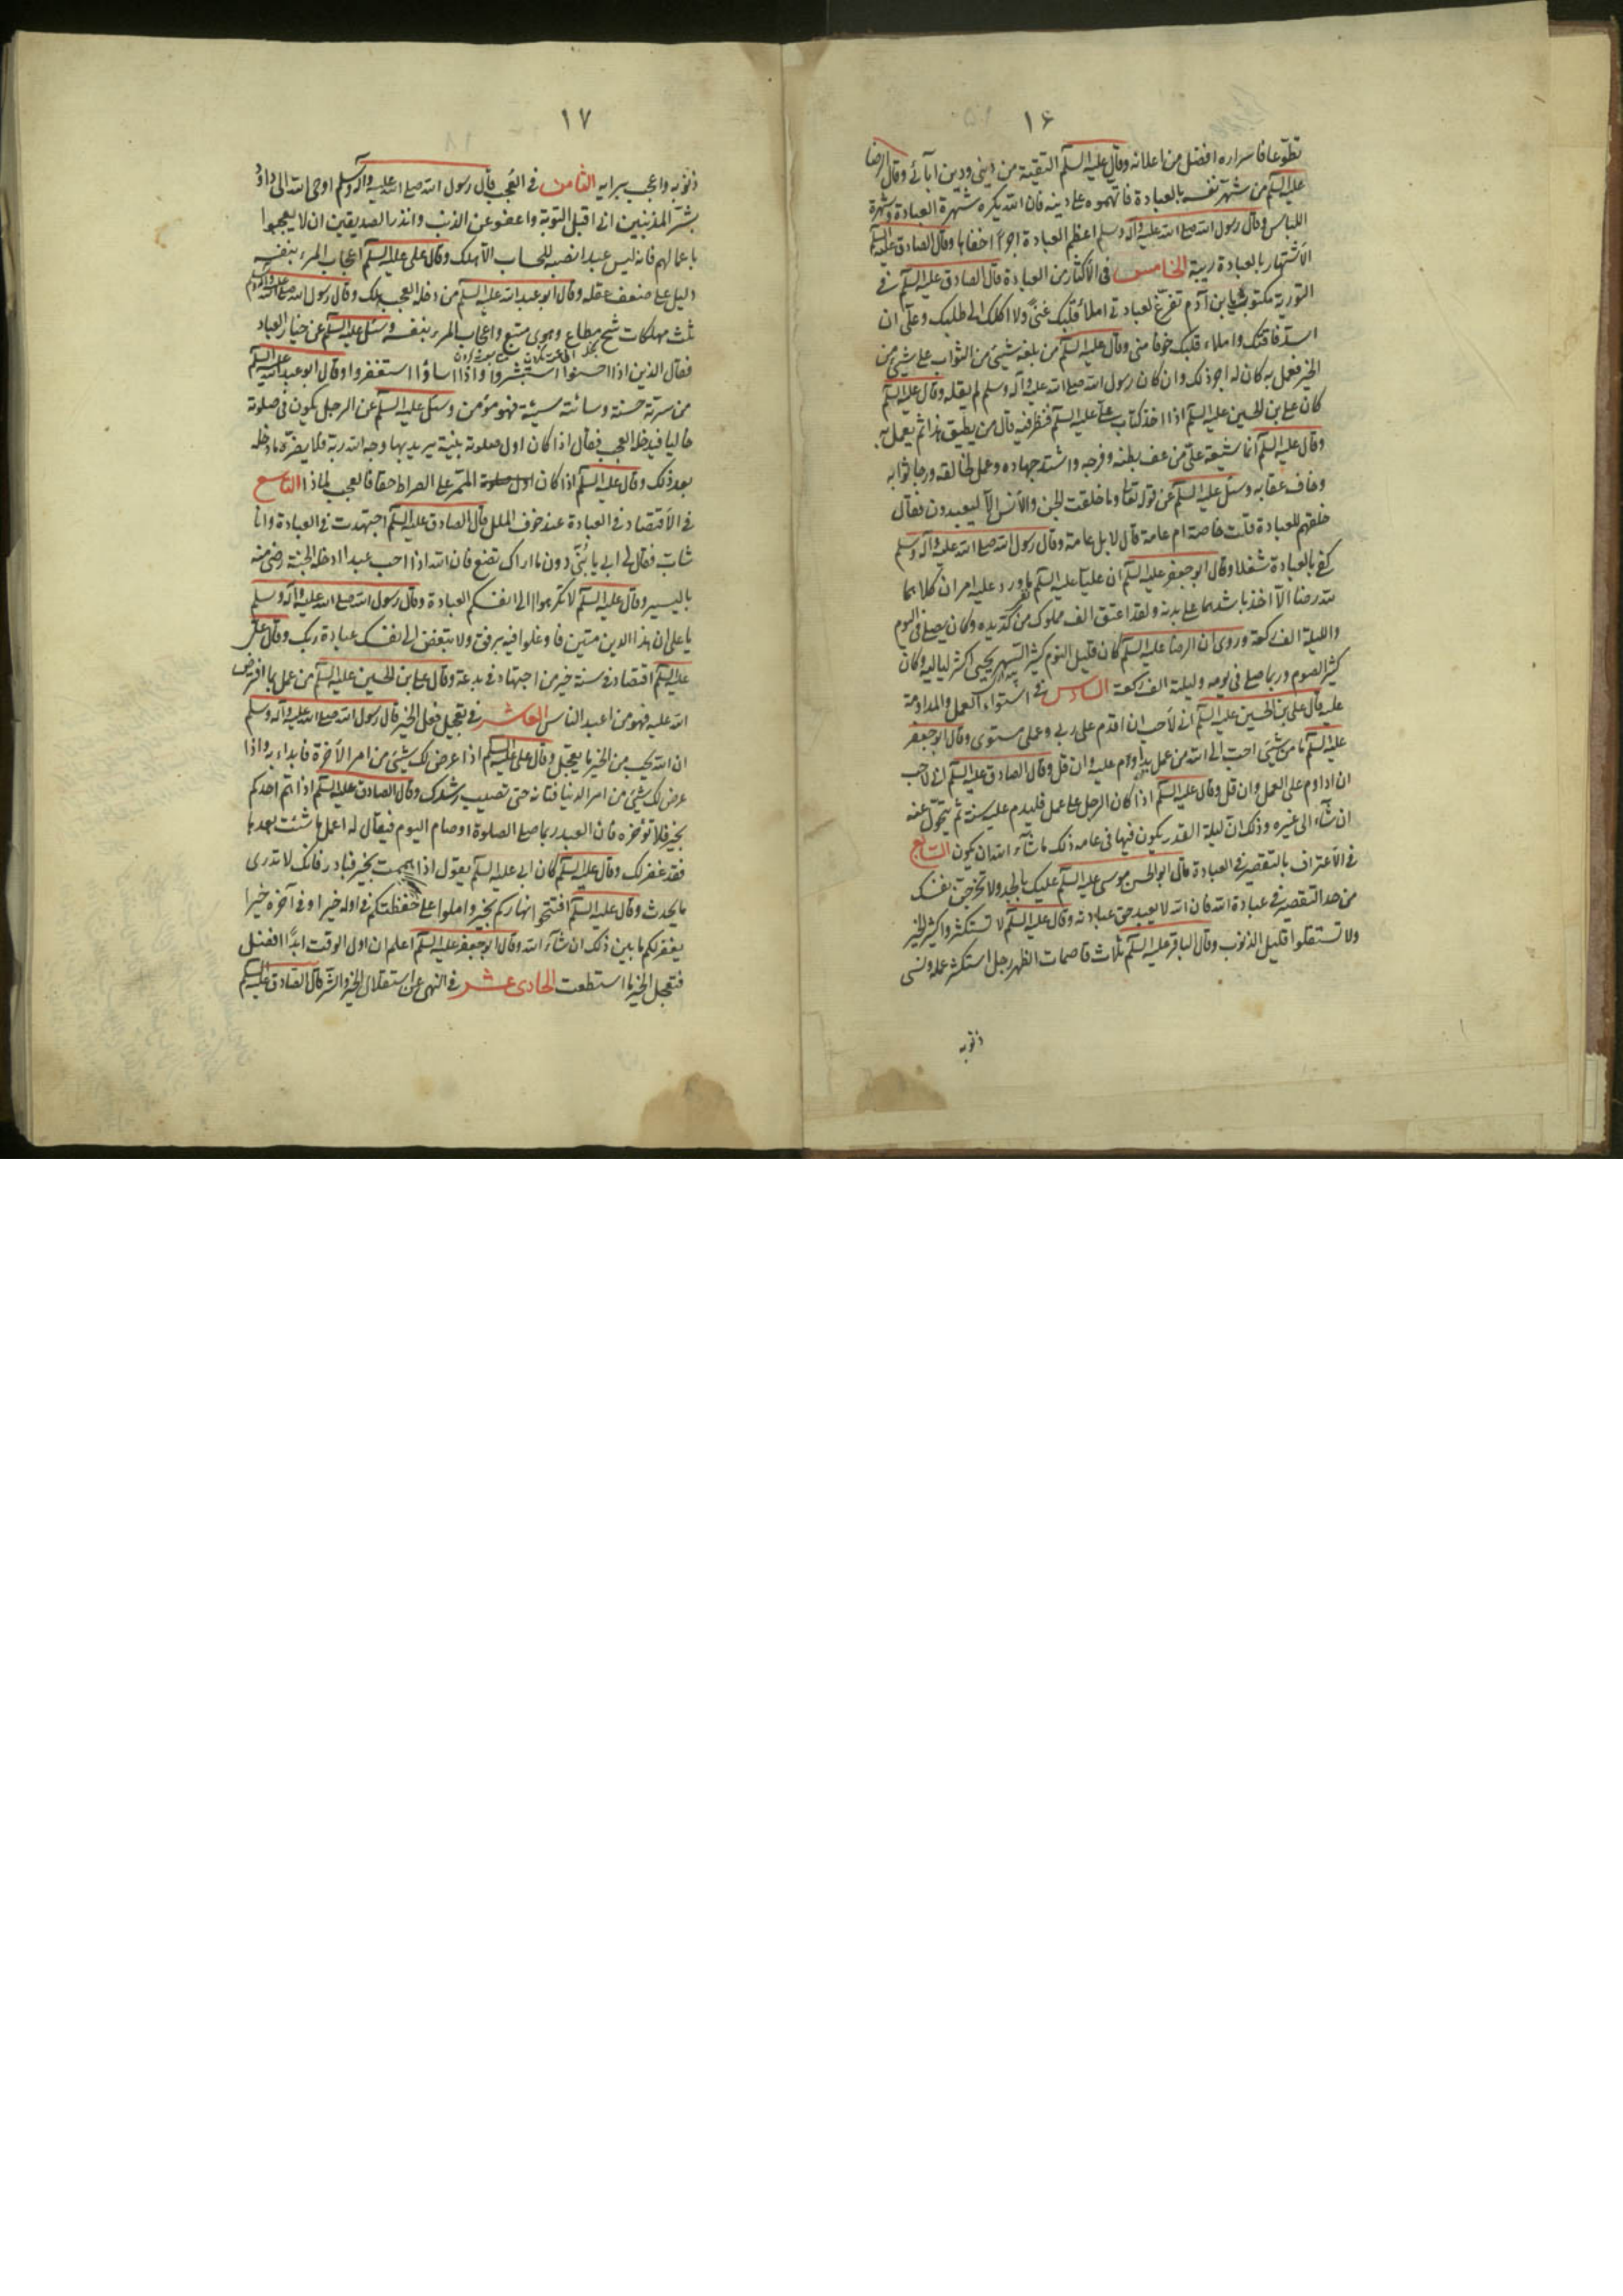 ١۶
تطوعا فاسراره افضل من اعلانه وقال عليه السلم التقية من ديني ودين آبائي وقال الرضا
عليه السلم من شهر نفسه بالعبادة فاتهموه على دينه فان الله يكره شهرة العبادة وشهرة
اللباس وقال رسول الله صلى الله عليه وآله وسلم اعظم العبادة اجرا اخفاها وقال الصادق عليه السلم
الاشتهار بالعبادة ريبة الخامس في الاكثار من العبادة قال الصادق عليه السلم في
التورية مكتوب يا بن آدم تفرغ لعبادتي املأ قلبك غنى ولا اكلك الى طلبك وعلى ان
اسد فاقتك واملاء قلبك خوفا مني وقال عليه السلم من بلغه شيئ من الثواب على شيئ من
الخير فعمل به كان له اجر ذلك وان كان رسول الله صلى الله عليه وآله وسلم لم يقله وقال عليه السلم
كان على بن الحسين عليه السلم اذا اخذ كتاب على عليه السلم فنظر فيه قال من يطيق هذا ثم يعمل به
وقال عليه السلم انما شيعة على من عف بطنه وفرجه واشتد جهاده وعمل لخالقه ورجا ثوابه
وخاف عقابه وسئل عليه السلم عن قوله تعالى وما خلقت الجن والانس الا ليعبدون فقال
خلقهم للعبادة قلت خاصة ام عامة قال لا بل عامة وقال رسول الله صلى الله عليه وآله وسلم
كفى بالعبادة شغلا وقال ابو جعفر عليه السلم ان عليا عليه السلم ما ورد عليه امران كلاهما
لله رضا الا اخذ باشدهما على بدنه ولقد اعتق الف مملوك من كد يده وكان يصلى في اليوم
والليلة الف ركعة وروى ان الرضا عليه السلم كان قليل النوم كثير السهر يحيى اكثر لياليه وكان
كثير الصوم وربما صلى في يومه وليلته الف ركعة السادس في استواء العمل والمداومة
عليه قال على بن الحسين عليه السلم اني لاحب ان اقدم على ربي وعملي مستوى وقال ابو جعفر
عليه السلم ما من شيئ احب الى الله من عمل يداوم عليه وان قل وقال الصادق عليه السلم اني لاحب
ان اداوم على العمل وان قل وقال عليه السلم اذا كان الرجل على عمل فليدم عليه سنة ثم يتحول عنه
ان شاء الى غيره وذلك ان ليلة القدر يكون فيها في عامه ذلك ما شاء الله ان يكون السابع
في الاعتراف بالتقصير في العبادة قال ابو الحسن موسى عليه السلم عليك بالجد ولا تخرجن نفسك
من حد التقصير في عبادة الله فان الله لا يعبد حق عبادته وقال عليه السلم لا تستكثروا كثير الخير
ولا تستقلوا قليل الذنوب وقال الباقر عليه السلم ثلاث قاصمات الظهر رجل استكثر عمله ونسى
ذنوبه
١٧
ذنوبه واعجب برايه الثامن في العجب قال رسول الله صلى الله عليه وآله وسلم اوحى الله الى داود
بشر المذنبين اني اقبل التوبة واعفو عن الذنب وانذر الصديقين ان لا يعجبوا
باعمالهم فانه ليس عبد انصبه للحساب الا هلك وقال على عليه السلم اعجاب المرء بنفسه
دليل على ضعف عقله وقال ابو عبد الله عليه السلم من دخله العجب هلك وقال رسول الله صلى الله عليه وآله وسلم
ثلث مهلكات شح مطاع وهوى متبع واعجاب المرء بنفسه وسئل عليه السلم عن خيار العباد
فقال الذين اذا احسنوا استبشروا واذا اساؤا استغفروا وقال ابو عبد الله عليه السلم
من سرته حسنة وسائته سيئة فهو مؤمن وسئل عليه السلم عن الرجل يكون في صلوته
خاليا فيدخله العجب فقال اذا كان اول صلوته بنية يريد بها وجه الله ربه فلا يضره ما دخله
بعد ذلك وقال عليه السلم اذا كان الممر على الصراط حقا فالعجب لماذا التاسع
في الاقتصاد في العبادة عند خوف الملل قال الصادق عليه السلم اجتهدت في العبادة وانا
شاب فقال لي ابي يا بني دون ما اراك تصنع فان الله اذا احب عبدا ادخله الجنة رضى منه
باليسير وقال عليه السلم لا تكرهوا الى انفسكم العبادة وقال رسول الله صلى الله عليه وآله وسلم
يا على ان هذا الدين متين فاوغلوا فيه برفق ولا تبغض الى نفسك عبادة ربك وقال على
عليه السلم اقتصاد في سنة خير من اجتهاد في بدعة وقال على بن الحسين عليه السلم من عمل بما افترض
الله عليه فهو من اعبد الناس العاشر في تعجيل فعل الخير قال رسول الله صلى الله عليه وآله وسلم
ان الله يحب من الخير ما يعجل وقال على عليه السلم اذا عرض لك شيئ من امر الآخرة فابداء به واذا
عرض لك شيئ من امر الدنيا فتانه حتى تصيب رشدك وقال الصادق عليه السلم اذا هم احدكم
بخير فلا تؤخره فان العبد ربما صلى الصلوة او صام اليوم فيقال له اعمل ما شئت بعدها
فقد غفر لك وقال عليه السلم كان ابي عليه السلم يقول اذا هممت بخير فبادر فانك لا تدرى
ما يحدث وقال عليه السلم افتتحوا نهاركم بخير واملوا على حفظتكم في اوله خيرا وفي آخره خيرا
يغفر لكم ما بين ذلك ان شاء الله وقال ابو جعفر عليه السلم اعلم ان اول الوقت ابدا افضل
فتعجل الخير ما استطعت الحادى عشر في النهى عن استقلال الخير والشر قال الصادق عليه السلم